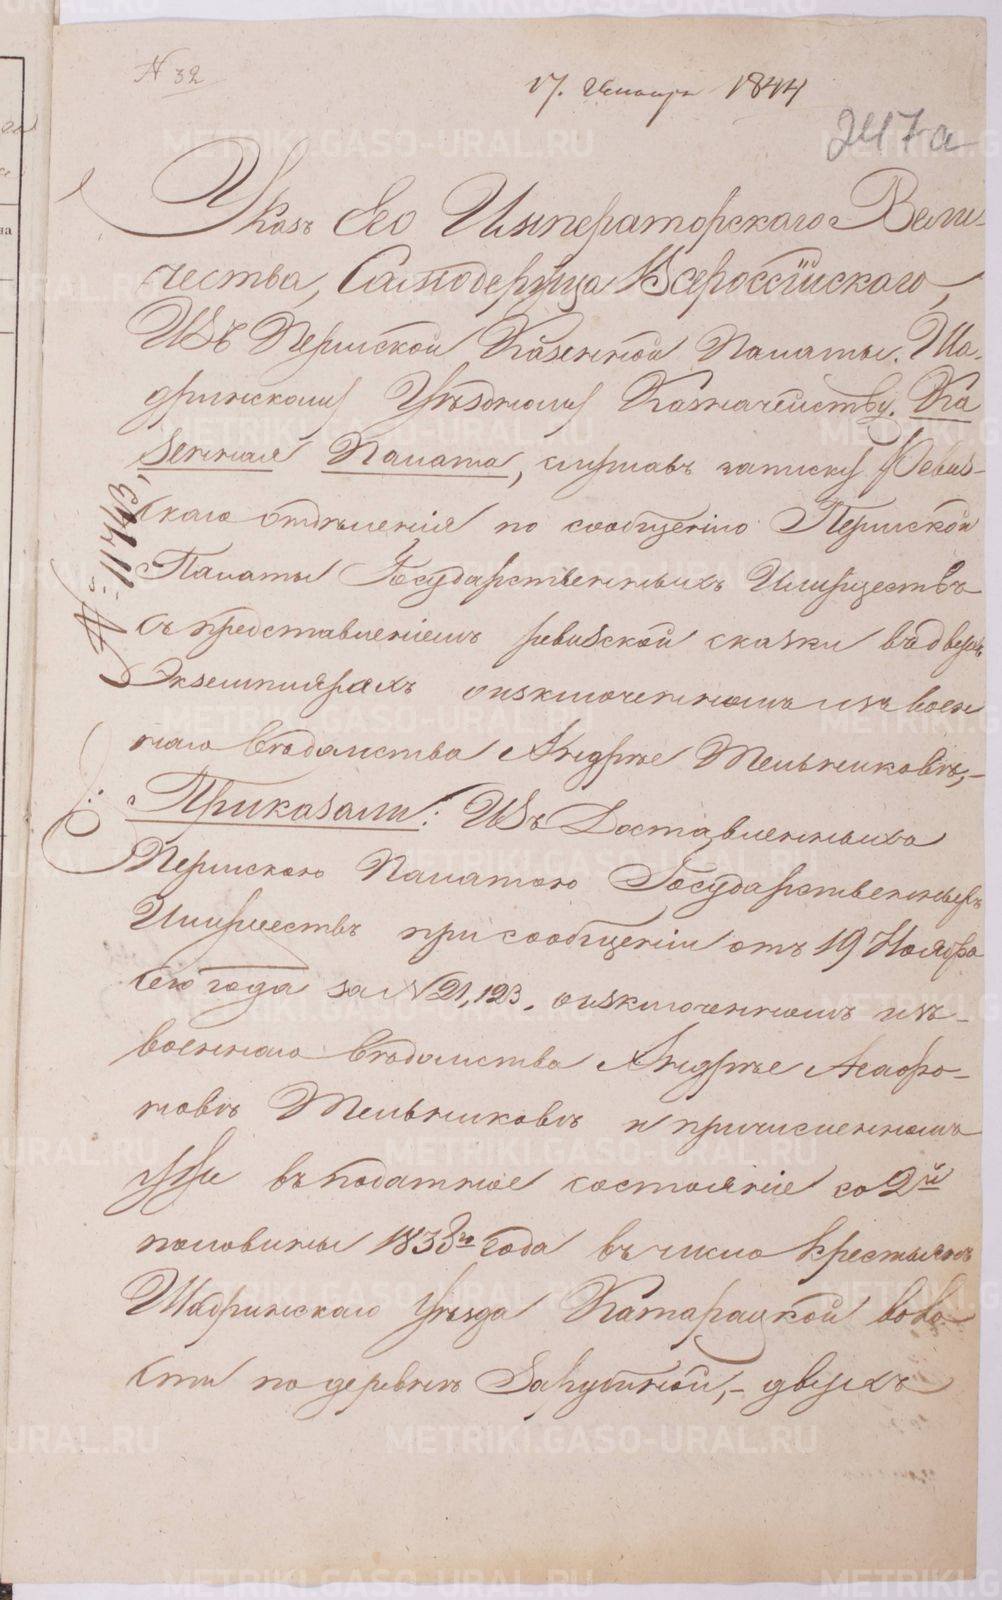 N 32
17. Января 1844
247а
Указъ Его Императорскаго Вели-
чества, Самодержца Всероссійскаго,
Изъ Пермской Казенной Палаты. Ша-
дринскому Уѣздному Казначейству. Ка
зенная Палата, слушавъ записку Ревиз-
скаго отдѣленія по сообщенію Пермской
Палаты Государственныхъ Имуществъ
съ представленіемъ ревизской сказки въ двухъ
Экземплярахъ о изключенномъ изъ воен
наго вѣдомства Андрѣе Мельниковѣ,-
Приказали: Изъ Доставленныхъ
Пермскою Палатою Государственныхъ
Имуществъ при сообщеніи отъ 19 Ноября
сего года за N 21,123. о изключенномъ изъ-
военнаго вѣдомства Андрѣе Агафо-
новѣ Мельниковѣ и причисленномъ
уже въ податное состояніе со 2й
половины 1838го года въ число крестьянъ
Шадринскаго Уѣзда Катарацкой воло
сти по деревнѣ Зарубиной,- двухъ
№ 11443,
METRIKI.GASO-URAL.RU